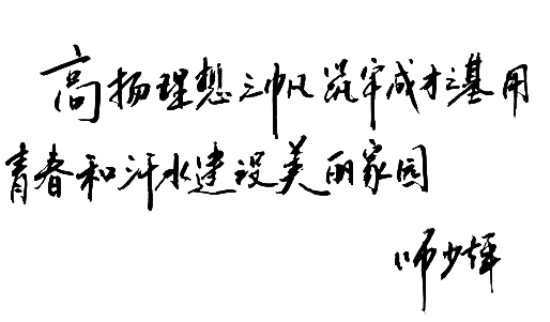 高扬理想之帆筑牢成才之基用
青春和汗水建设美丽家园
师少辉